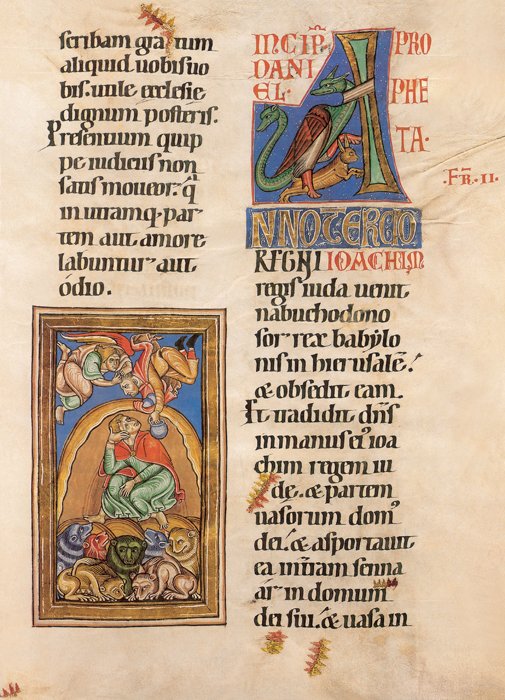 scribam gratum
aliquid vobis uo
bis. utile ecclesie
dignum posteris.
Presentium quip
pe iudiciis non
satis moueor. q̄
in utramq. par
tem aut amore
labuntur aut
odio.
INCIP̄ PRO
DANI
EL. PHE
TA.
A
.FR. II.
NNO TERCIO
REGNI IOACHIM
regis iuda uenit
nabuchodono
sor rex babylo
nis in hierusalē.
& obsedit eam.
Et tradidit dn̄s
in manu ei' ioa
chim regem iu
de. & partem
uasorum dom'
dei. & asportauit
ea in terram senna
ar in domum
dei sui. & uasa in